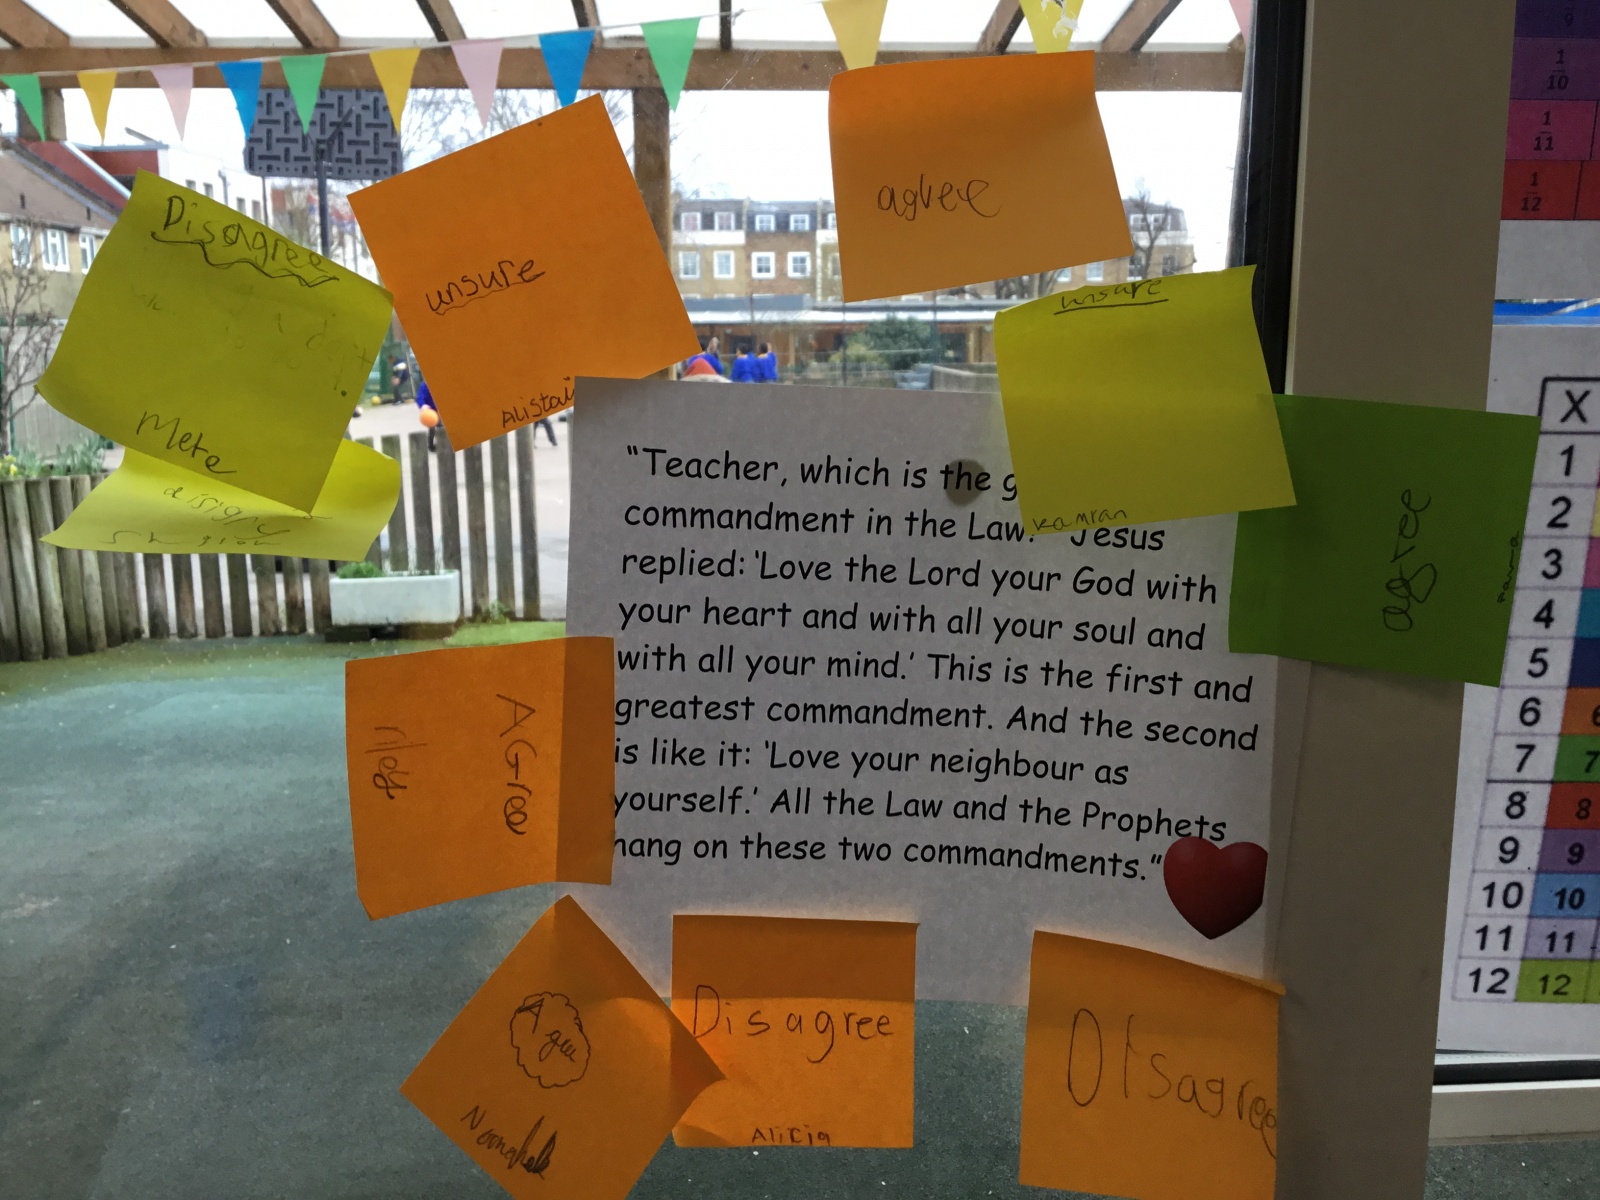 Disagree
Mere
unsure
Alistai
agree
unsure
Kamran
"Teacher, which is the g
commandment in the Law. Jesus
replied: 'Love the Lord your God with
your heart and with all your soul and
with all your mind.' This is the first and
greatest commandment. And the second
is like it: 'Love your neighbour as
yourself.' All the Law and the Prophets
hang on these two commandments."
agree
AGree
riley
Agree
Disagree
Alicia
DIsagree
1/10
1/11
1/12
X
1
2
3
4
5
6 6
7 7
8 8
9 9
10 10
11 11
12 12